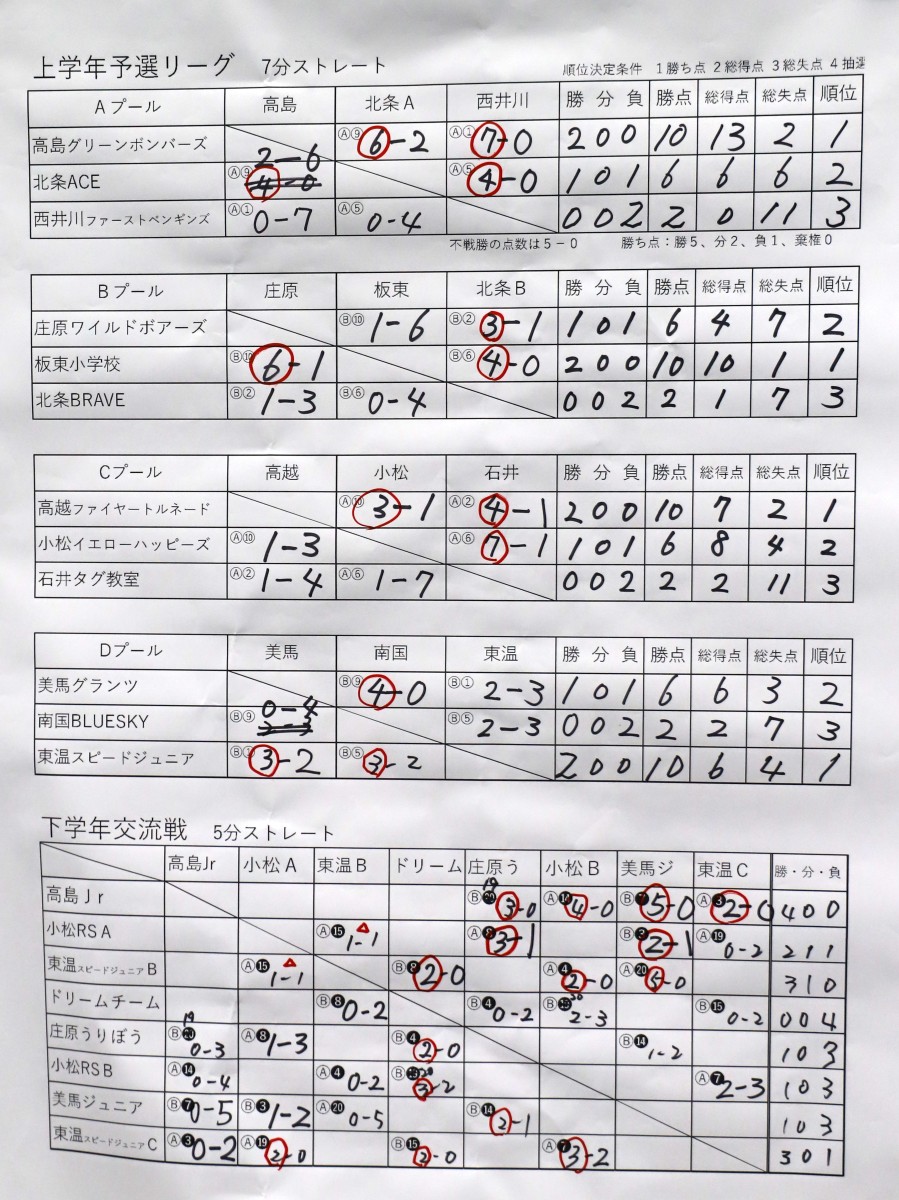 上学年予選リーグ 7分ストレート 順位決定条件 1勝ち点 2総得点 3総失点 4抽選
Aプール 高島 北条A 西井川 勝 分 負 勝点 総得点 総失点 順位
高島グリーンボンバーズ Ⓐ⑨ 6-2 Ⓐ① 7-0 2 0 0 10 13 2 1
2-6
北条ACE Ⓐ⑨ 4-0 Ⓐ⑤ 4-0 1 0 1 6 6 6 2
西井川ファーストペンギンズ Ⓐ① 0-7 Ⓐ⑤ 0-4 0 0 2 2 0 11 3
不戦勝の点数は5-0 勝ち点：勝5、分2、負1、棄権0
Bプール 庄原 板東 北条B 勝 分 負 勝点 総得点 総失点 順位
庄原ワイルドボアーズ Ⓑ⑩ 1-6 Ⓑ② 3-1 1 0 1 6 4 7 2
板東小学校 Ⓑ⑩ 6-1 Ⓑ⑥ 4-0 2 0 0 10 10 1 1
北条BRAVE Ⓑ② 1-3 Ⓑ⑥ 0-4 0 0 2 2 1 7 3
Cプール 高越 小松 石井 勝 分 負 勝点 総得点 総失点 順位
高越ファイヤートルネード Ⓐ⑩ 3-1 Ⓐ② 4-1 2 0 0 10 7 2 1
小松イエローハッピーズ Ⓐ⑩ 1-3 Ⓐ⑥ 7-1 1 0 1 6 8 4 2
石井タグ教室 Ⓐ② 1-4 Ⓐ⑥ 1-7 0 0 2 2 2 11 3
Dプール 美馬 南国 東温 勝 分 負 勝点 総得点 総失点 順位
美馬グランツ Ⓑ⑨ 4-0 Ⓑ① 2-3 1 0 1 6 6 3 2
0-4
南国BLUESKY Ⓑ⑨ Ⓑ⑤ 2-3 0 0 2 2 2 7 3
東温スピードジュニア Ⓑ① 3-2 Ⓑ⑤ 3-2 2 0 0 10 6 4 1
下学年交流戦 5分ストレート
高島Jr 小松A 東温B ドリーム 庄原う 小松B 美馬ジ 東温C 勝・分・負
高島Jr Ⓑ 19 3-0 Ⓐ⓮ 4-0 Ⓑ❼ 5-0 Ⓐ❸ 2-0 4 0 0
小松RS A Ⓐ⓯ 1-1 Ⓐ❽ 3-1 Ⓑ❸ 2-1 Ⓐ⓳ 0-2 2 1 1
東温スピードジュニアB Ⓐ⓯ 1-1 Ⓑ❽ 2-0 Ⓐ❹ 2-0 Ⓐ⓴ 5-0 3 1 0
ドリームチーム Ⓑ❽ 0-2 Ⓑ❹ 0-2 Ⓑ 20 2-3 Ⓑ⓯ 0-2 0 0 4
庄原うりぼう Ⓑ 19 0-3 Ⓐ❽ 1-3 Ⓑ❹ 2-0 Ⓑ⓮ 1-2 1 0 3
小松RS B Ⓐ⓮ 0-4 Ⓐ❹ 0-2 Ⓑ 20 3-2 Ⓐ❼ 2-3 1 0 3
美馬ジュニア Ⓑ❼ 0-5 Ⓑ❸ 1-2 Ⓐ⓴ 0-5 Ⓑ⓮ 2-1 1 0 3
東温スピードジュニアC Ⓐ❸ 0-2 Ⓐ⓳ 2-0 Ⓑ⓯ 2-0 Ⓐ❼ 3-2 3 0 1